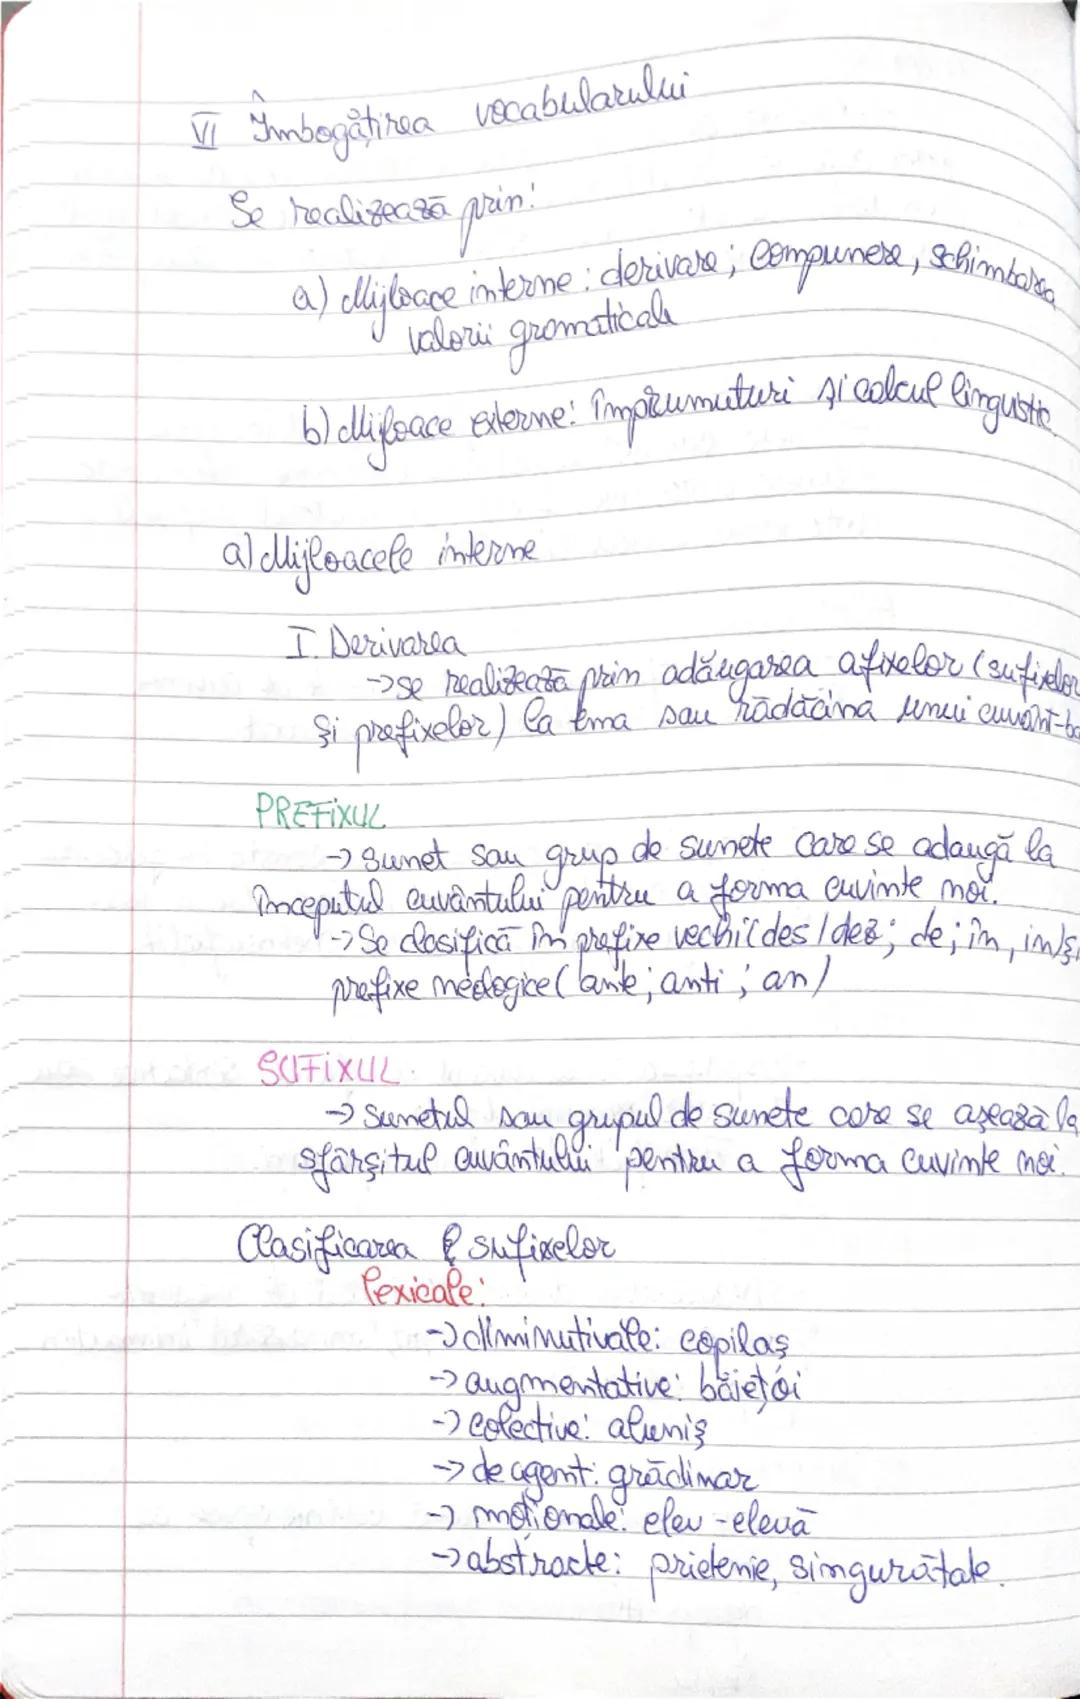 VI Îmbogățirea vocabularului
Se realizează prin:
a) Mijloace interne: derivare; compunere, schimbarea
valorii gramaticale
b) Mijloace externe: împrumuturi și calcul lingvistic
a) Mijloacele interne
I. Derivarea
->se realizează prin adăugarea afixelor (sufixelor
și prefixelor) la tema sau rădăcina unui cuvânt-ba
PREFIXUL
-> Sunet sau grup de sunete care se adaugă la
începutul cuvântului pentru a forma cuvinte noi.
-> Se clasifică în prefixe vechi (des/dez; de; în, im) și
prefixe neologice (ante; anti; an)
SUFIXUL
-> Sunetul sau grupul de sunete care se așează la
sfârșitul cuvântului pentru a forma cuvinte noi.
Clasificarea sufixelor
lexicale:
-> diminutivale: copilaș
-> augmentative: băiețoi
-> colective: aluniș
-> de agent: grădinar
-> moționale: elev - elevă
-> abstracte: prietenie, singurătate.